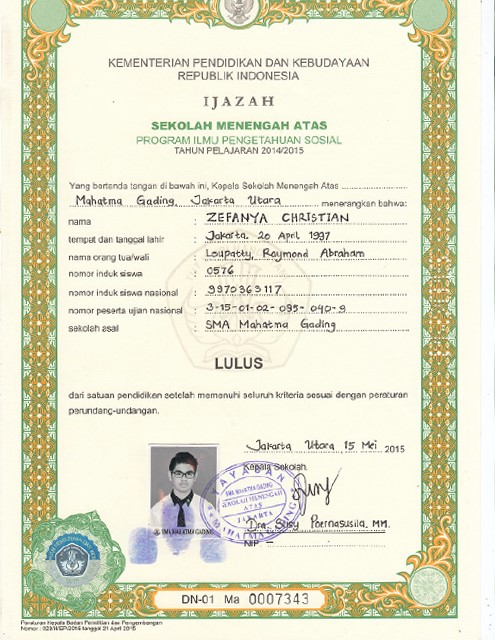 KEMENTERIAN PENDIDIKAN DAN KEBUDAYAAN
REPUBLIK INDONESIA
IJAZAH
SEKOLAH MENENGAH ATAS
PROGRAM ILMU PENGETAHUAN SOSIAL
TAHUN PELAJARAN 2014/2015
Yang bertanda tangan di bawah ini, Kepala Sekolah Menengah Atas
Mahatma Gading, Jakarta Utara menerangkan bahwa:
nama : ZEFANYA CHRISTIAN
tempat dan tanggal lahir : Jakarta, 20 April 1997
nama orang tua/wali : Loupatty, Raymond Abraham
nomor induk siswa : 0576
nomor induk siswa nasional : 9970363117
nomor peserta ujian nasional : 3-15-01-02-095-040-9
sekolah asal : SMA Mahatma Gading
LULUS
dari satuan pendidikan setelah memenuhi seluruh kriteria sesuai dengan peraturan
perundang-undangan.
Jakarta Utara, 15 Mei 2015
Kepala Sekolah,
YAYASAN
SMA MAHATMA GADING
SEKOLAH MENENGAH
ATAS
JAKARTA
MAHATMA GADING
SMA MAHATMA GADING
Dra. Susy Poernasusila, MM.
NIP –
DN-01 Ma 0007343
Peraturan Kepala Badan Penelitian dan Pengembangan
Nomor : 023/H/EP/2015 tanggal 21 April 2015